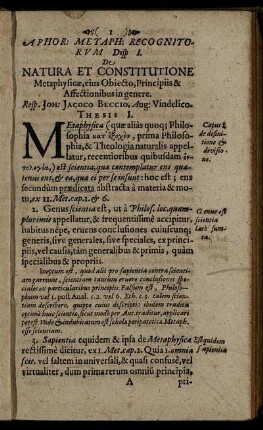 ( 1 )
APHOR: METAPH: RECOGNITO-
RVM Disp. I.
De
NATURA ET CONSTITUTIONE
Metaphysicæ, eius Obiecto, Principiis &
Affectionibus in genere.
Resp. JOH: JACOCO BECCIO, Aug: Vindelico.
THESIS I.
MEtaphysica (quæ aliàs quoq; Philo-
sophia κατ' ἐξοχὴν, prima Philoso-
phia, & Theologia naturalis appel-
latur, recentioribus quibusdam ὀν-
τολογία,) est scientia, quæ contemplatur ens qua-
tenus ens, & ea, quæ ei per se insunt: hoc est; ens
secundùm prædicata abstracta à materia & mo-
tu, ex 11. Met. cap. 1. & 6.
Caput I.
de defini-
tione &
divisio-
ne.
2. Genus scientia est, ut à Philos. loc. quam-
plurimis appellatur, & frequentissimè accipitur,
habitus népe, eruens conclusiones cuiuscunq;
generis, sive generales, sive speciales, ex princi-
piis, vel causis, tàm generalibus & primis, quàm
specialibus & propriis.
Genus est
scientia
latè sum-
ta.
Ineptum est, quod alii pro sapientia contra scienti-
am garriunt, scientiam tantùm eruere conclusiones spe-
ciales ex particularibus principiis. Falsum est, Philoso-
phum vel 1. post. Anal. c. 2. vel 6. Eth. c. 3. talem scien-
tiam describere, quippe cuius descriptio ibidem tradita
optimè huic scientia, sicut modò per Aut. traditur, applicari
potest
3. Sapientia equidem & ipsa de Metaphysica
rectissimè dicitur, ex 1. Met. cap. 2. Quia 1. omnia
scit, vel saltem in universali, & quasi confusè, vel
virtualiter, dum prima rerum omniũ principia,
Est quidem
sapientia
A pri-